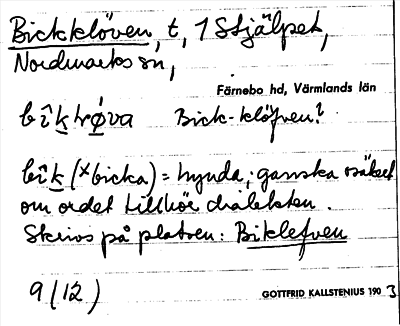 Bickklöven, t, 1 Stjälpet,
Nordmarks sn,
Färnebo hd, Värmlands län
bîkkrø̂va Bick-klöfven?
bîk (×bicka) = hynda; ganska säkert
om ordet tillhör dialekten.
Skrivs på platsen: Biklefven
9 (12)
GOTTFRID KALLSTENIUS 1903